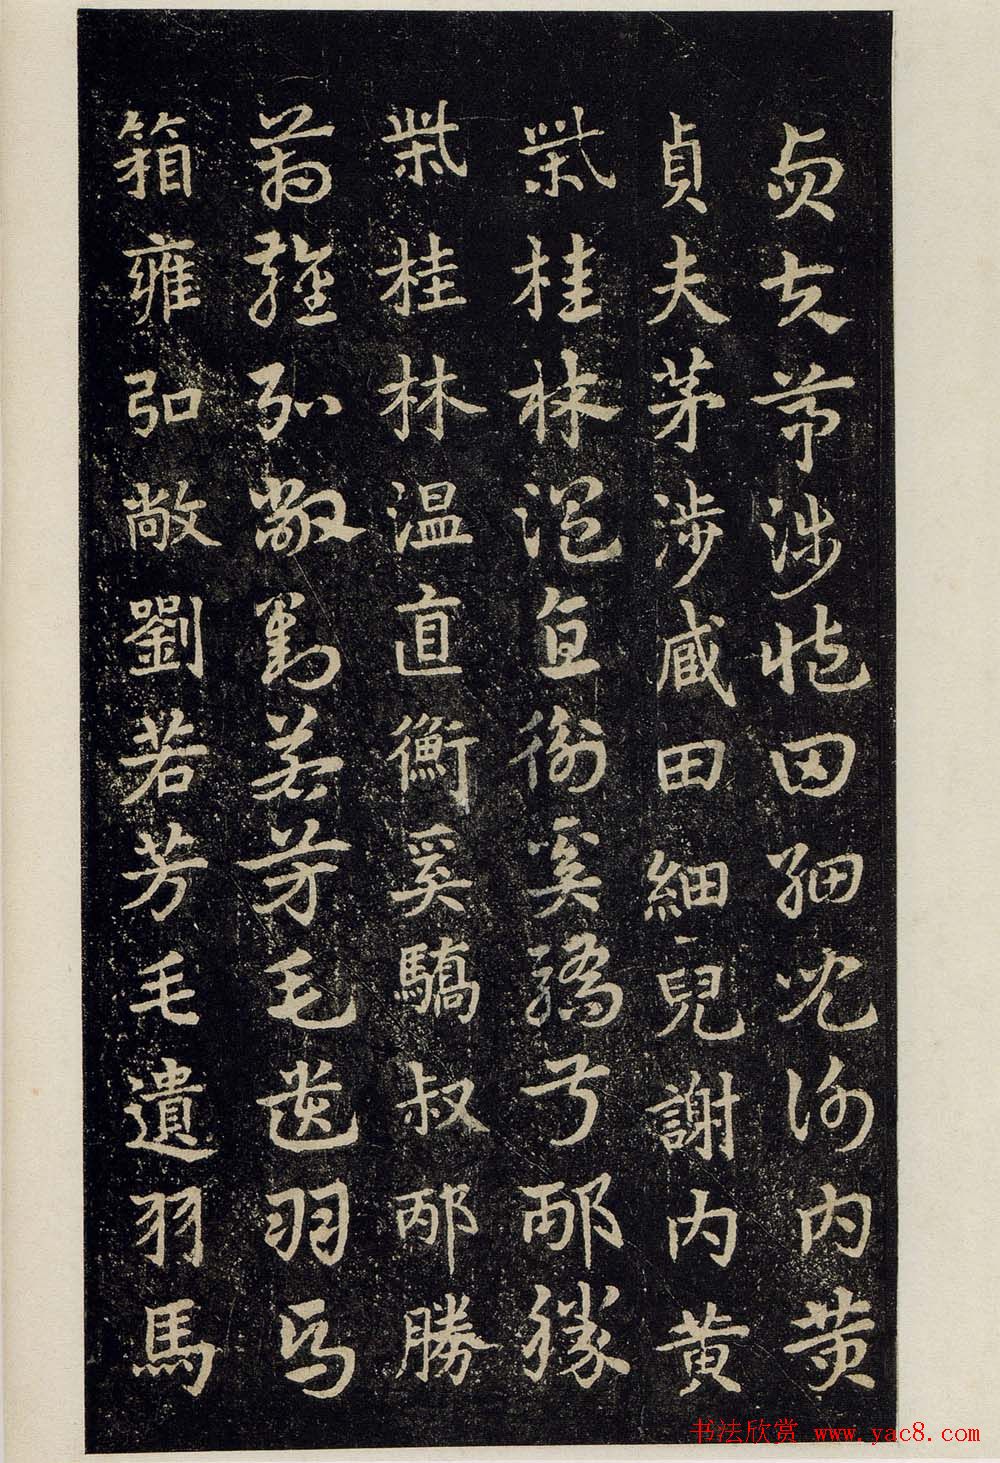 貞夫茅涉臧田細兒謝内黄
貞夫茅涉臧田細兒謝内黄
柴桂林温直衡奚驕叔邴勝
柴桂林温直衡奚驕叔邴勝
箱雍弘敞劉若芳毛遺羽馬
箱雍弘敞劉若芳毛遺羽馬
书法欣赏 www.yac8.com